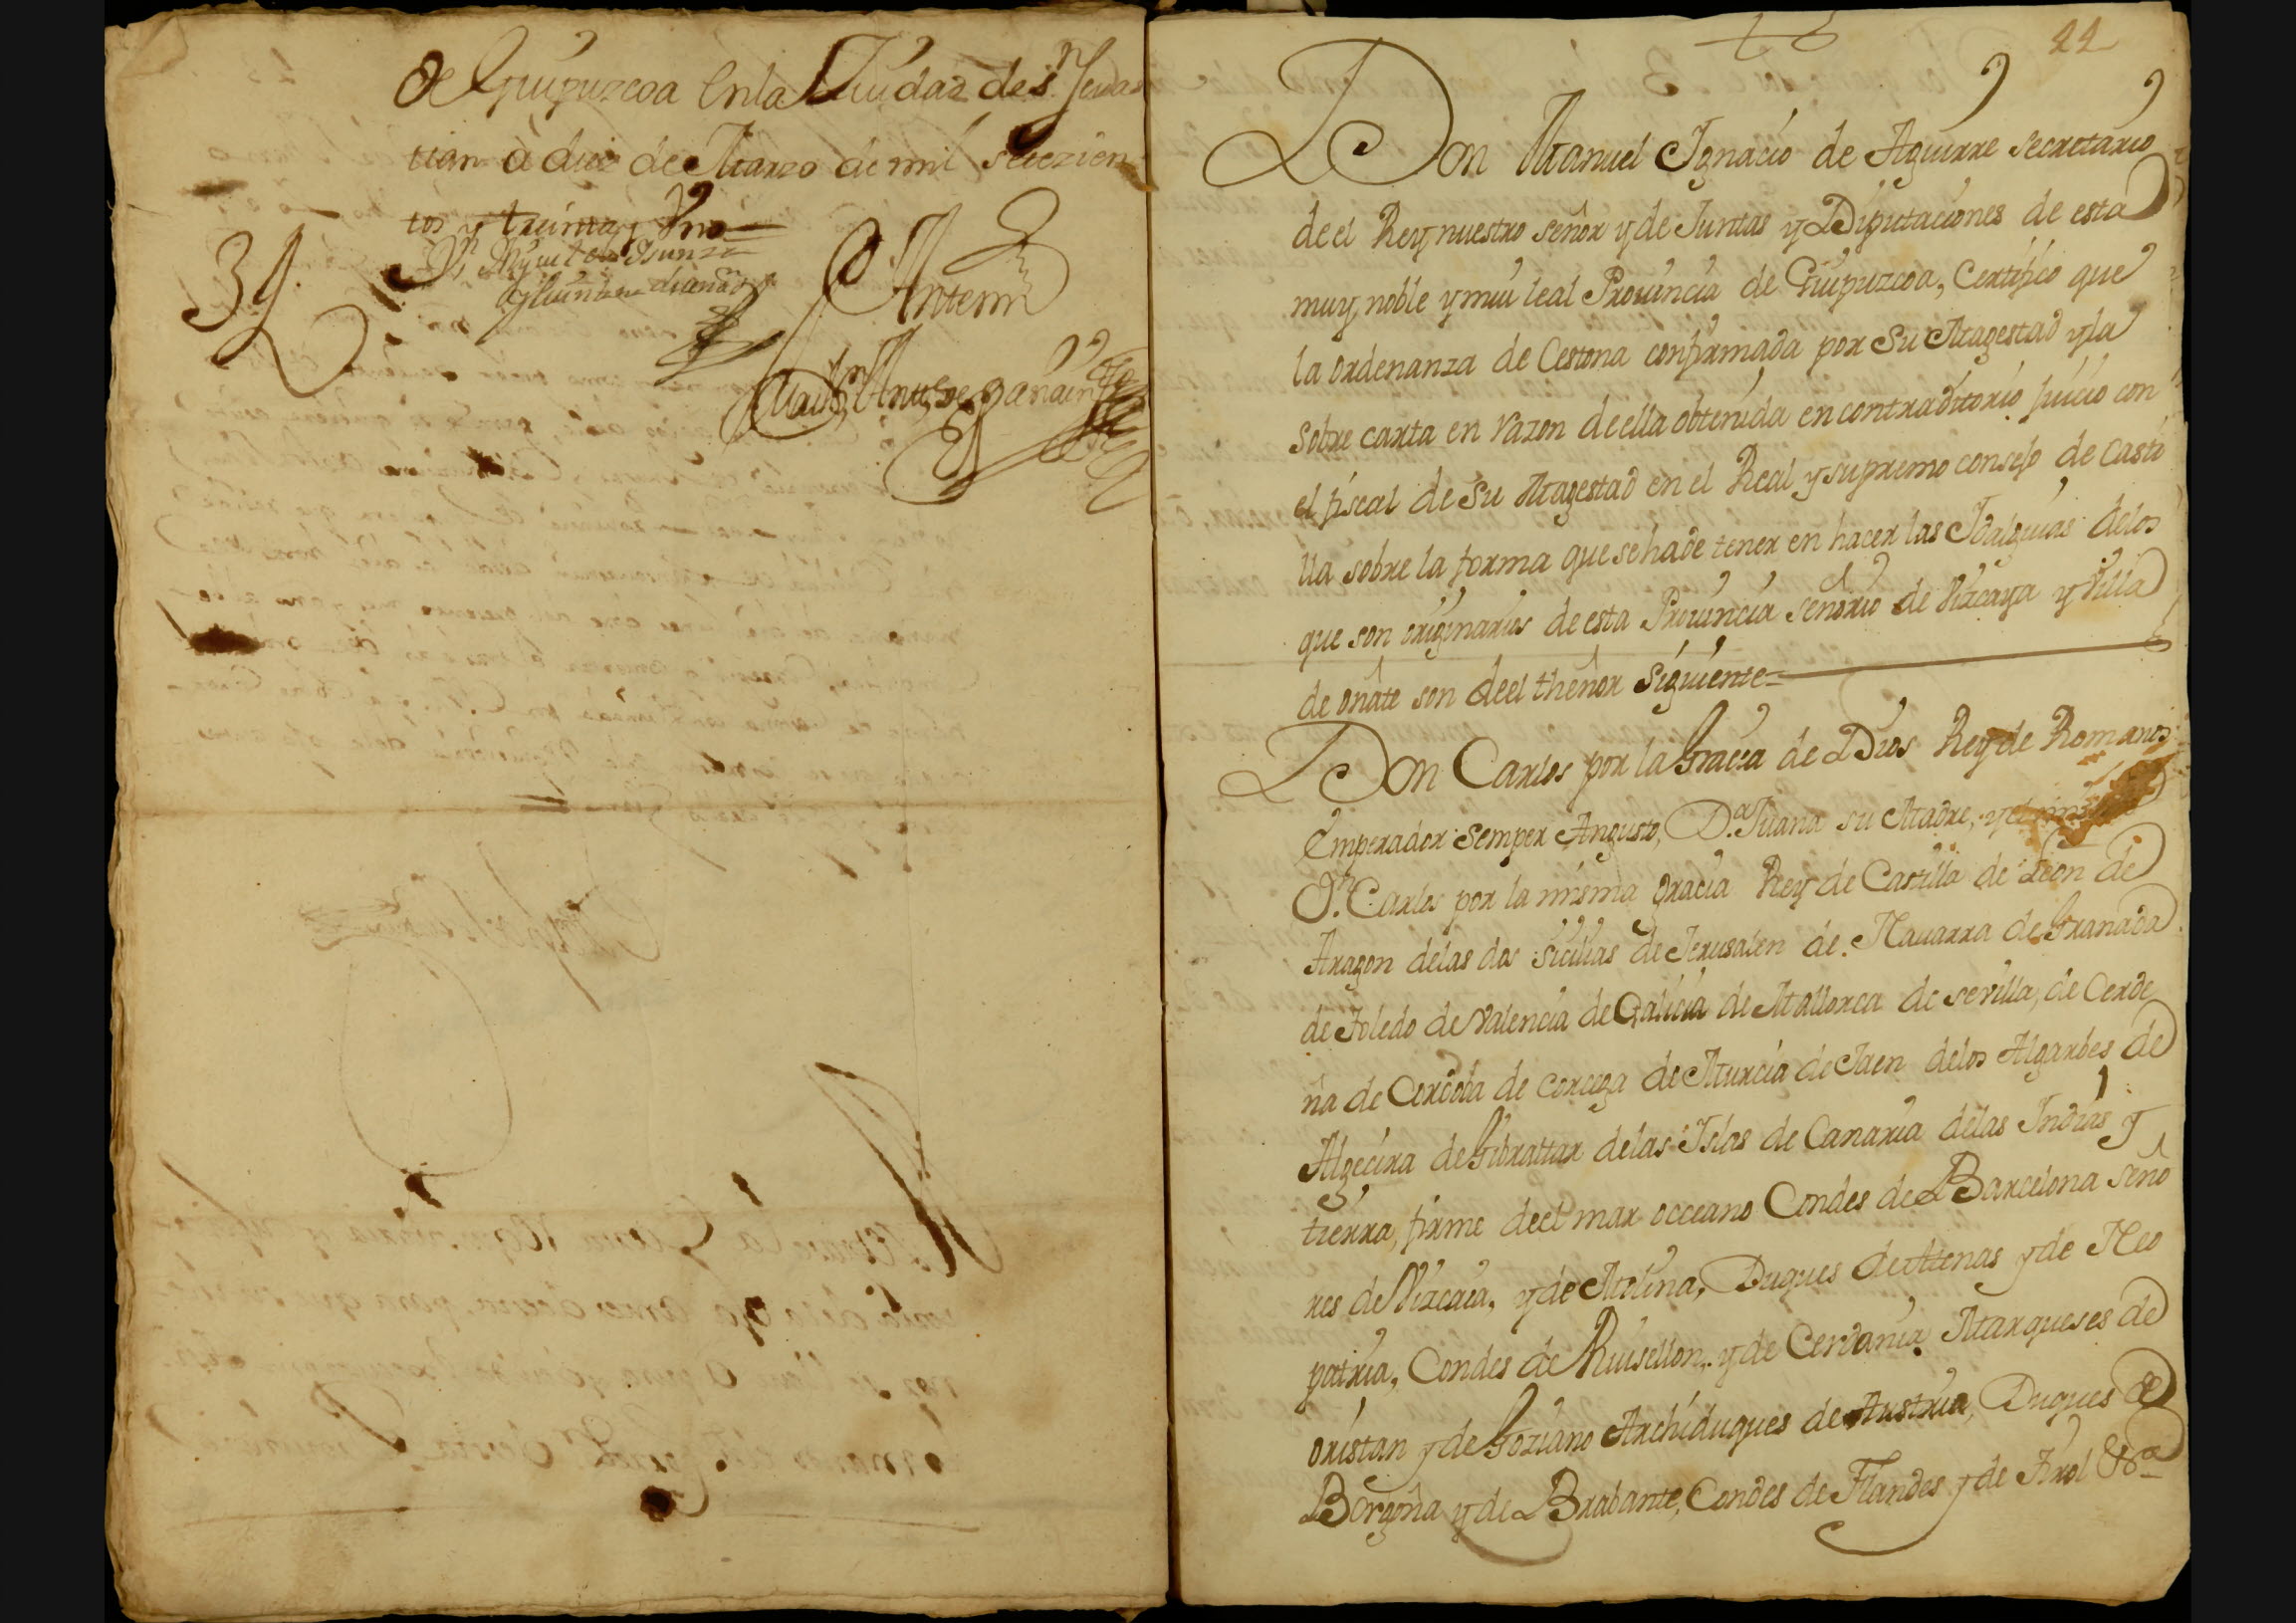 de Guipuzcoa en la Ciudad de S.n Sevas
tian à diez de Marzo de mil setezien
tos y treinta y Uno
39
D.n Miguel de Osunza
Ante mi
Man.l Ant.o de
22
Don Manuel Ignacio de Aguirre secretario
de el Rey nuestro señor y de Juntas y Diputaciones de esta
muy noble y mui leal Prouincia de Guipuzcoa, Certifico que
la ordenanza de Cestona confirmada por Su Magestad y la
sobre carta en razon de ella obtenida en contraditorio juicio con
el fiscal de Su Magestad en el Real y supremo consejo de Casti
lla sobre la forma que se ha de tener en hacer las Idalguias de los
que son originarios de esta Prouincia señorio de Vizcaya y Villa
de oñate son de el thenor siguiente
Don Carlos por la Gracia de Dios Rey de Romanos
Emperador semper Augusto, D.a Juana su Madre, y el mismo
D.n Carlos por la misma gracia Rey de Castilla de Leon de
Aragon de las dos Sicilias de Jerusalen de Nauarra de Granada
de Toledo de Valencia de Galicia de Mallorca de sevilla, de Cerde
ña de Cordoba de corcega de Murcia de Jaen de los Algarbes de
Algecira de Gibraltar de las Islas de Canaria de las Indias y
tierra, firme de el mar occeano Condes de Barcelona seño
res de Vizcaia, y de Molina, Duques de Atenas y de Neo
patria, Condes de Ruisellon, y de Cerdania Marqueses de
oristan y de Goziano Archiduques de Austria, Duques de
Borgoña y de Brabante, Condes de Flandes y de Tirol &a